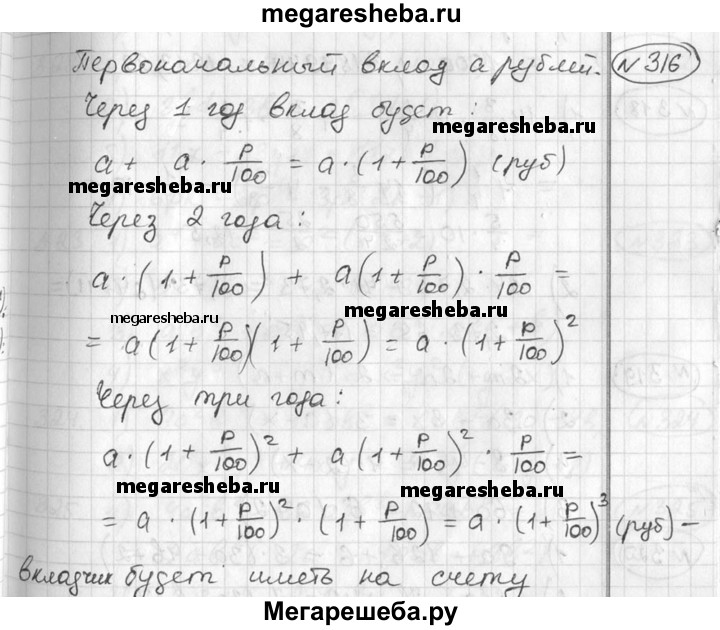 megaresheba.ru
Первоначальный вклад a рублей. N 316
Через 1 год вклад будет:
megaresheba.ru
a + a · p/100 = a · (1 + p/100) (руб)
megaresheba.ru
Через 2 года:
a · (1 + p/100) + a(1 + p/100) · p/100 =
megaresheba.ru
megaresheba.ru
= a(1 + p/100)(1 + p/100) = a · (1 + p/100)²
Через три года:
a · (1 + p/100)² + a(1 + p/100)² · p/100 =
megaresheba.ru megaresheba.ru
= a · (1 + p/100)² · (1 + p/100) = a · (1 + p/100)³ (руб) –
вкладчик будет иметь на счету
Мегарешеба.ру